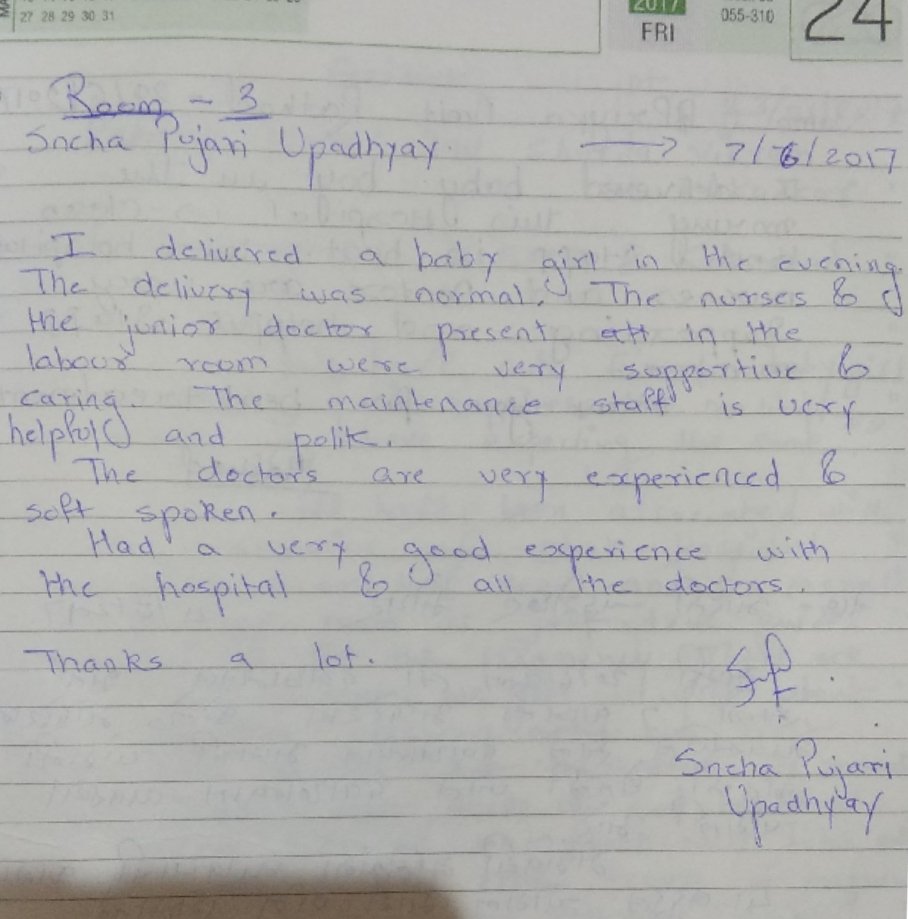 27 28 29 30 31
2017
FRI
055-310
24
Room - 3
Sneha Pujari Upadhyay. → 7/6/2017
I delivered a baby girl in the evening.
The delivery was normal. The nurses &
the junior doctor present in the
labour room were very supportive &
caring. The maintenance staff is very
helpful and polite.
The doctors are very experienced &
soft spoken.
Had a very good experience with
the hospital & all the doctors.
Thanks a lot.
Sneha Pujari
Upadhyay